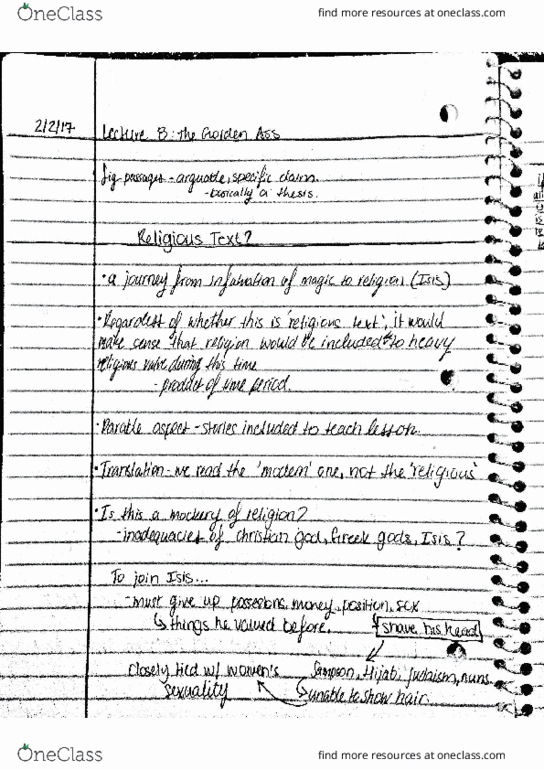 OneClass
find more resources at oneclass.com
2/2/17
Lecture 8: The Golden Ass
Sig passages - arguable, specific claim.
- basically a thesis.
Religious Text?
• a journey from infatuation of magic to religion (Isis)
• Regardless of whether this is 'religious text', it would
make sense that religion would be included to heavy
religious value during this time
- product of time period.
• Parable aspect - stories included to teach lesson.
• Translation - we read the 'modern' one, not the 'religious'
• Is this a mockery of religion?
- inadequacies of christian god, Greek gods, Isis?
To join Isis...
- must give up possessions, money, position, sex
↳ things he valued before.
+ shave his head
closely tied w/ women's
sexuality
Sampson, Hijab, Judaism, nuns
↳ unable to show hair.
OneClass
find more resources at oneclass.com